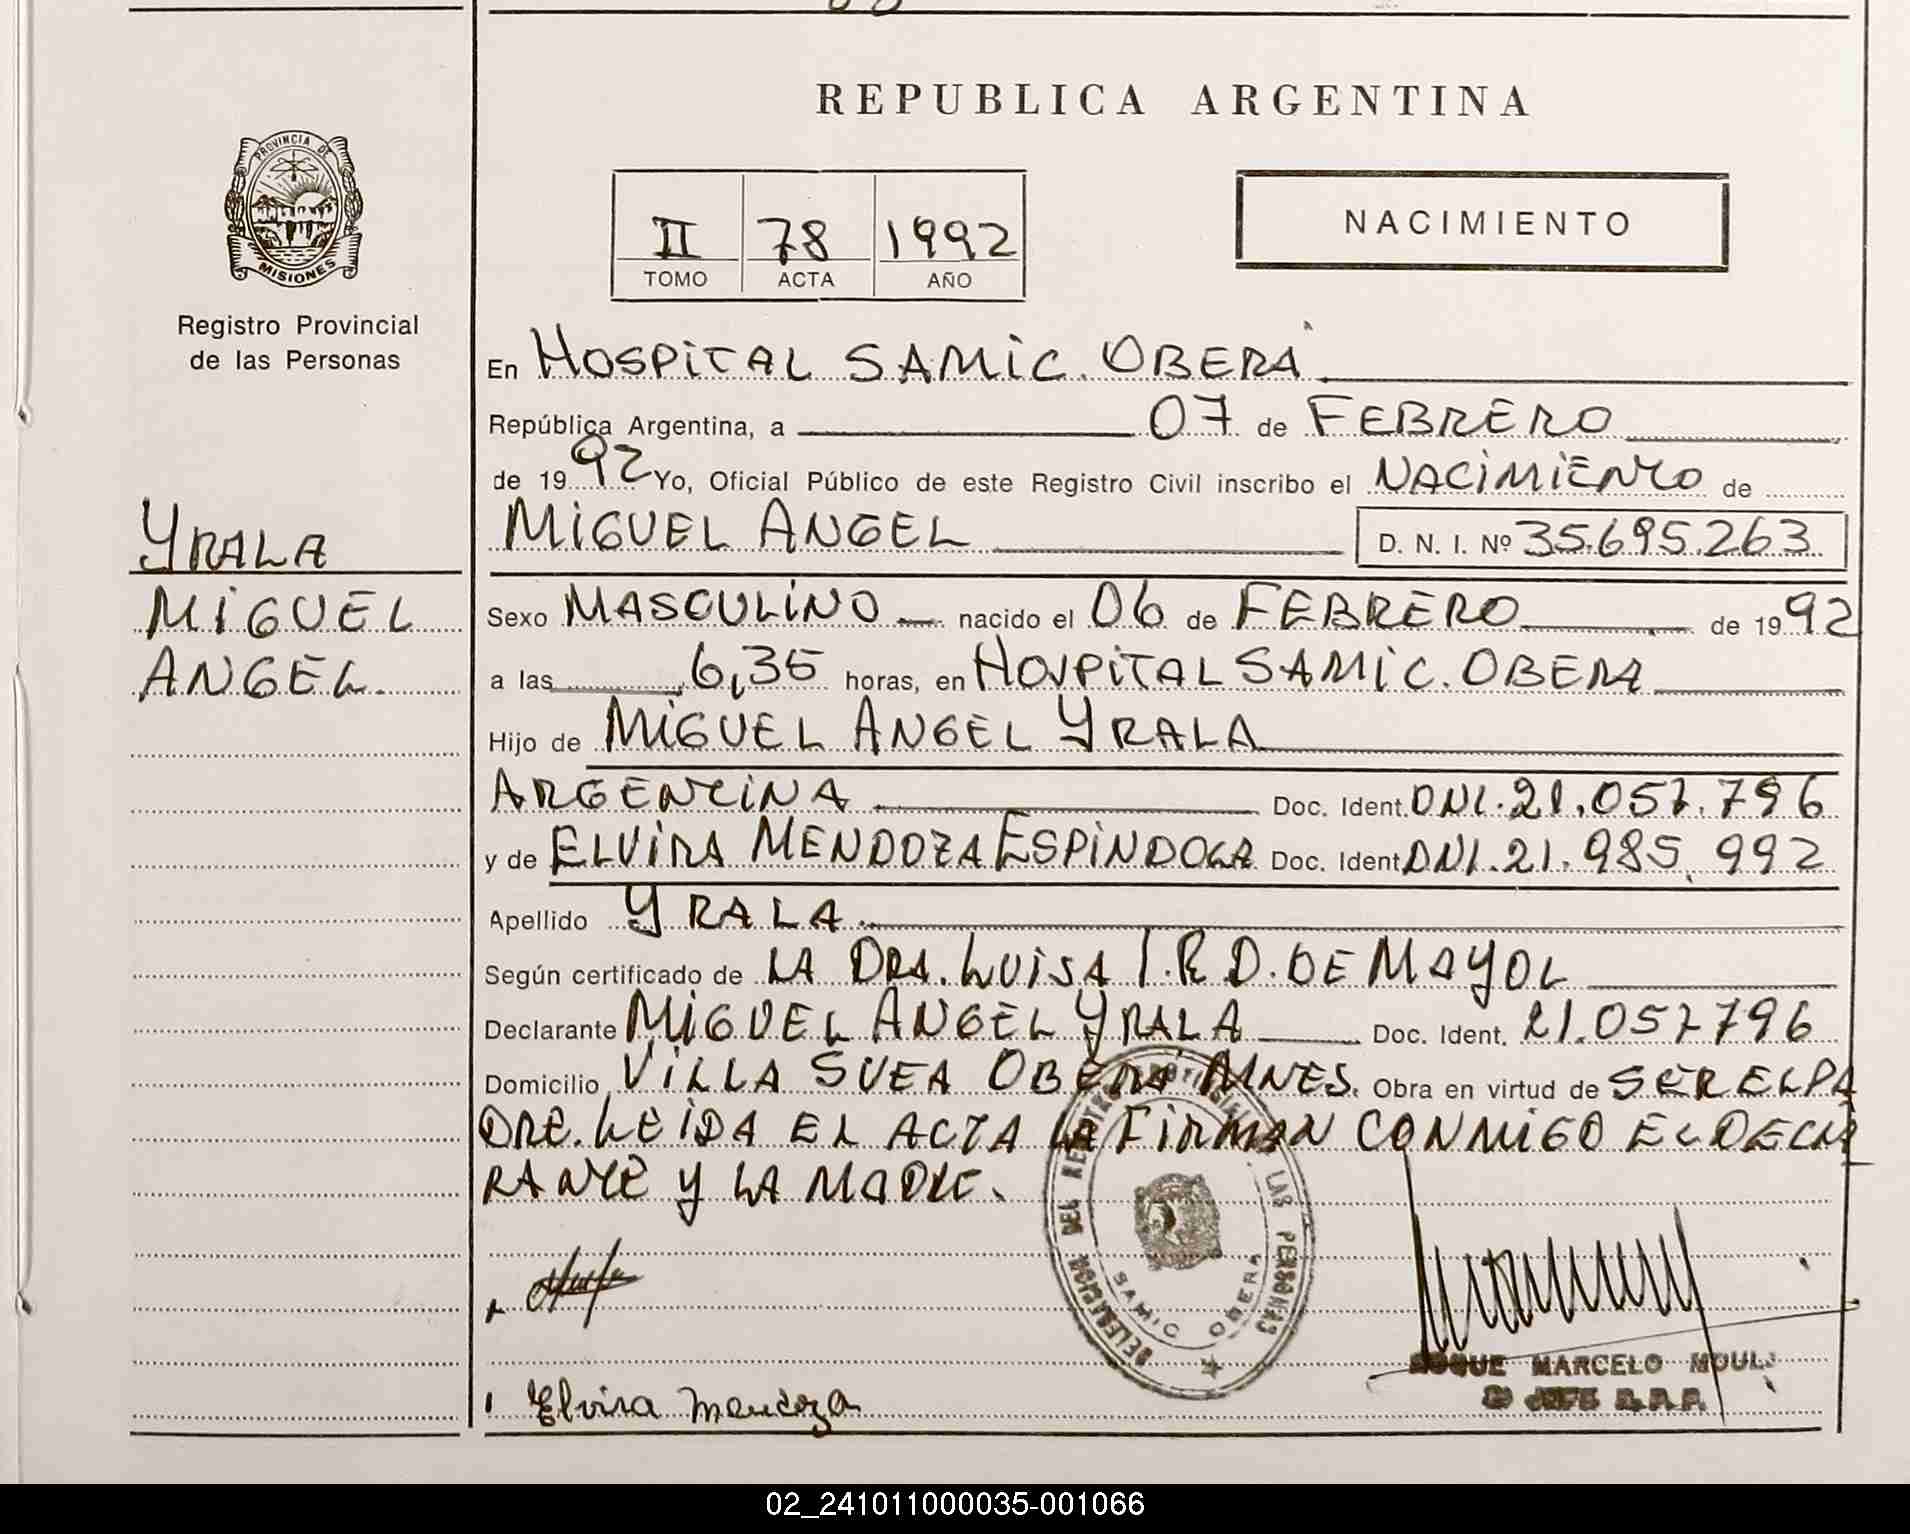 REPUBLICA ARGENTINA
PROVINCIA DE
MISIONES
Registro Provincial
de las Personas
II 78 1992
TOMO ACTA AÑO
NACIMIENTO
En HOSPITAL SAMIC. OBERÁ
República Argentina, a 07 de FEBRERO
de 1992 Yo, Oficial Público de este Registro Civil inscribo el NACIMIENTO de
MIGUEL ANGEL D. N. I. Nº 35.695.263
YRALA
MIGUEL
ANGEL.
Sexo MASCULINO nacido el 06 de FEBRERO de 1992
a las 6,35 horas, en HOSPITAL SAMIC. OBERA
Hijo de MIGUEL ANGEL YRALA
ARGENTINA Doc. Ident. DNI. 21.057.796
y de ELVIRA MENDOZA ESPINDOLA Doc. Ident. DNI. 21.985.992
Apellido YRALA
Según certificado de LA DRA. LUISA I. R. D. DE MAYOL
Declarante MIGUEL ANGEL YRALA Doc. Ident. 21.057796
Domicilio VILLA SVEA OBERÁ MNES. Obra en virtud de SER EL PA
DRE. LEIDA EL ACTA LA FIRMAN CONMIGO EL DECLA
RANTE Y LA MADRE.
DELEGACION DEL REGISTRO LAS PERSONAS
SAMIC OBERA
ROQUE MARCELO
JEFE R.P.P.
Elvira Mendoza
02_241011000035-001066